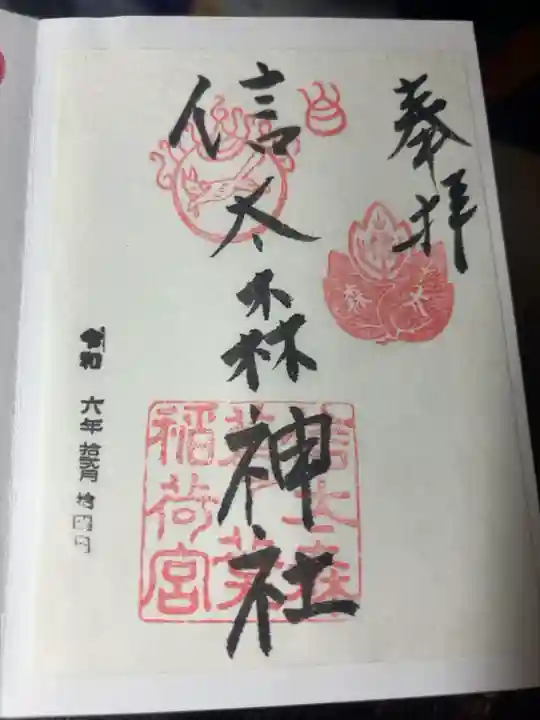 奉拝
信太森神社
信太森
葛葉
稲荷宮
信
太
森
令和 六年 拾弐月 拾四日